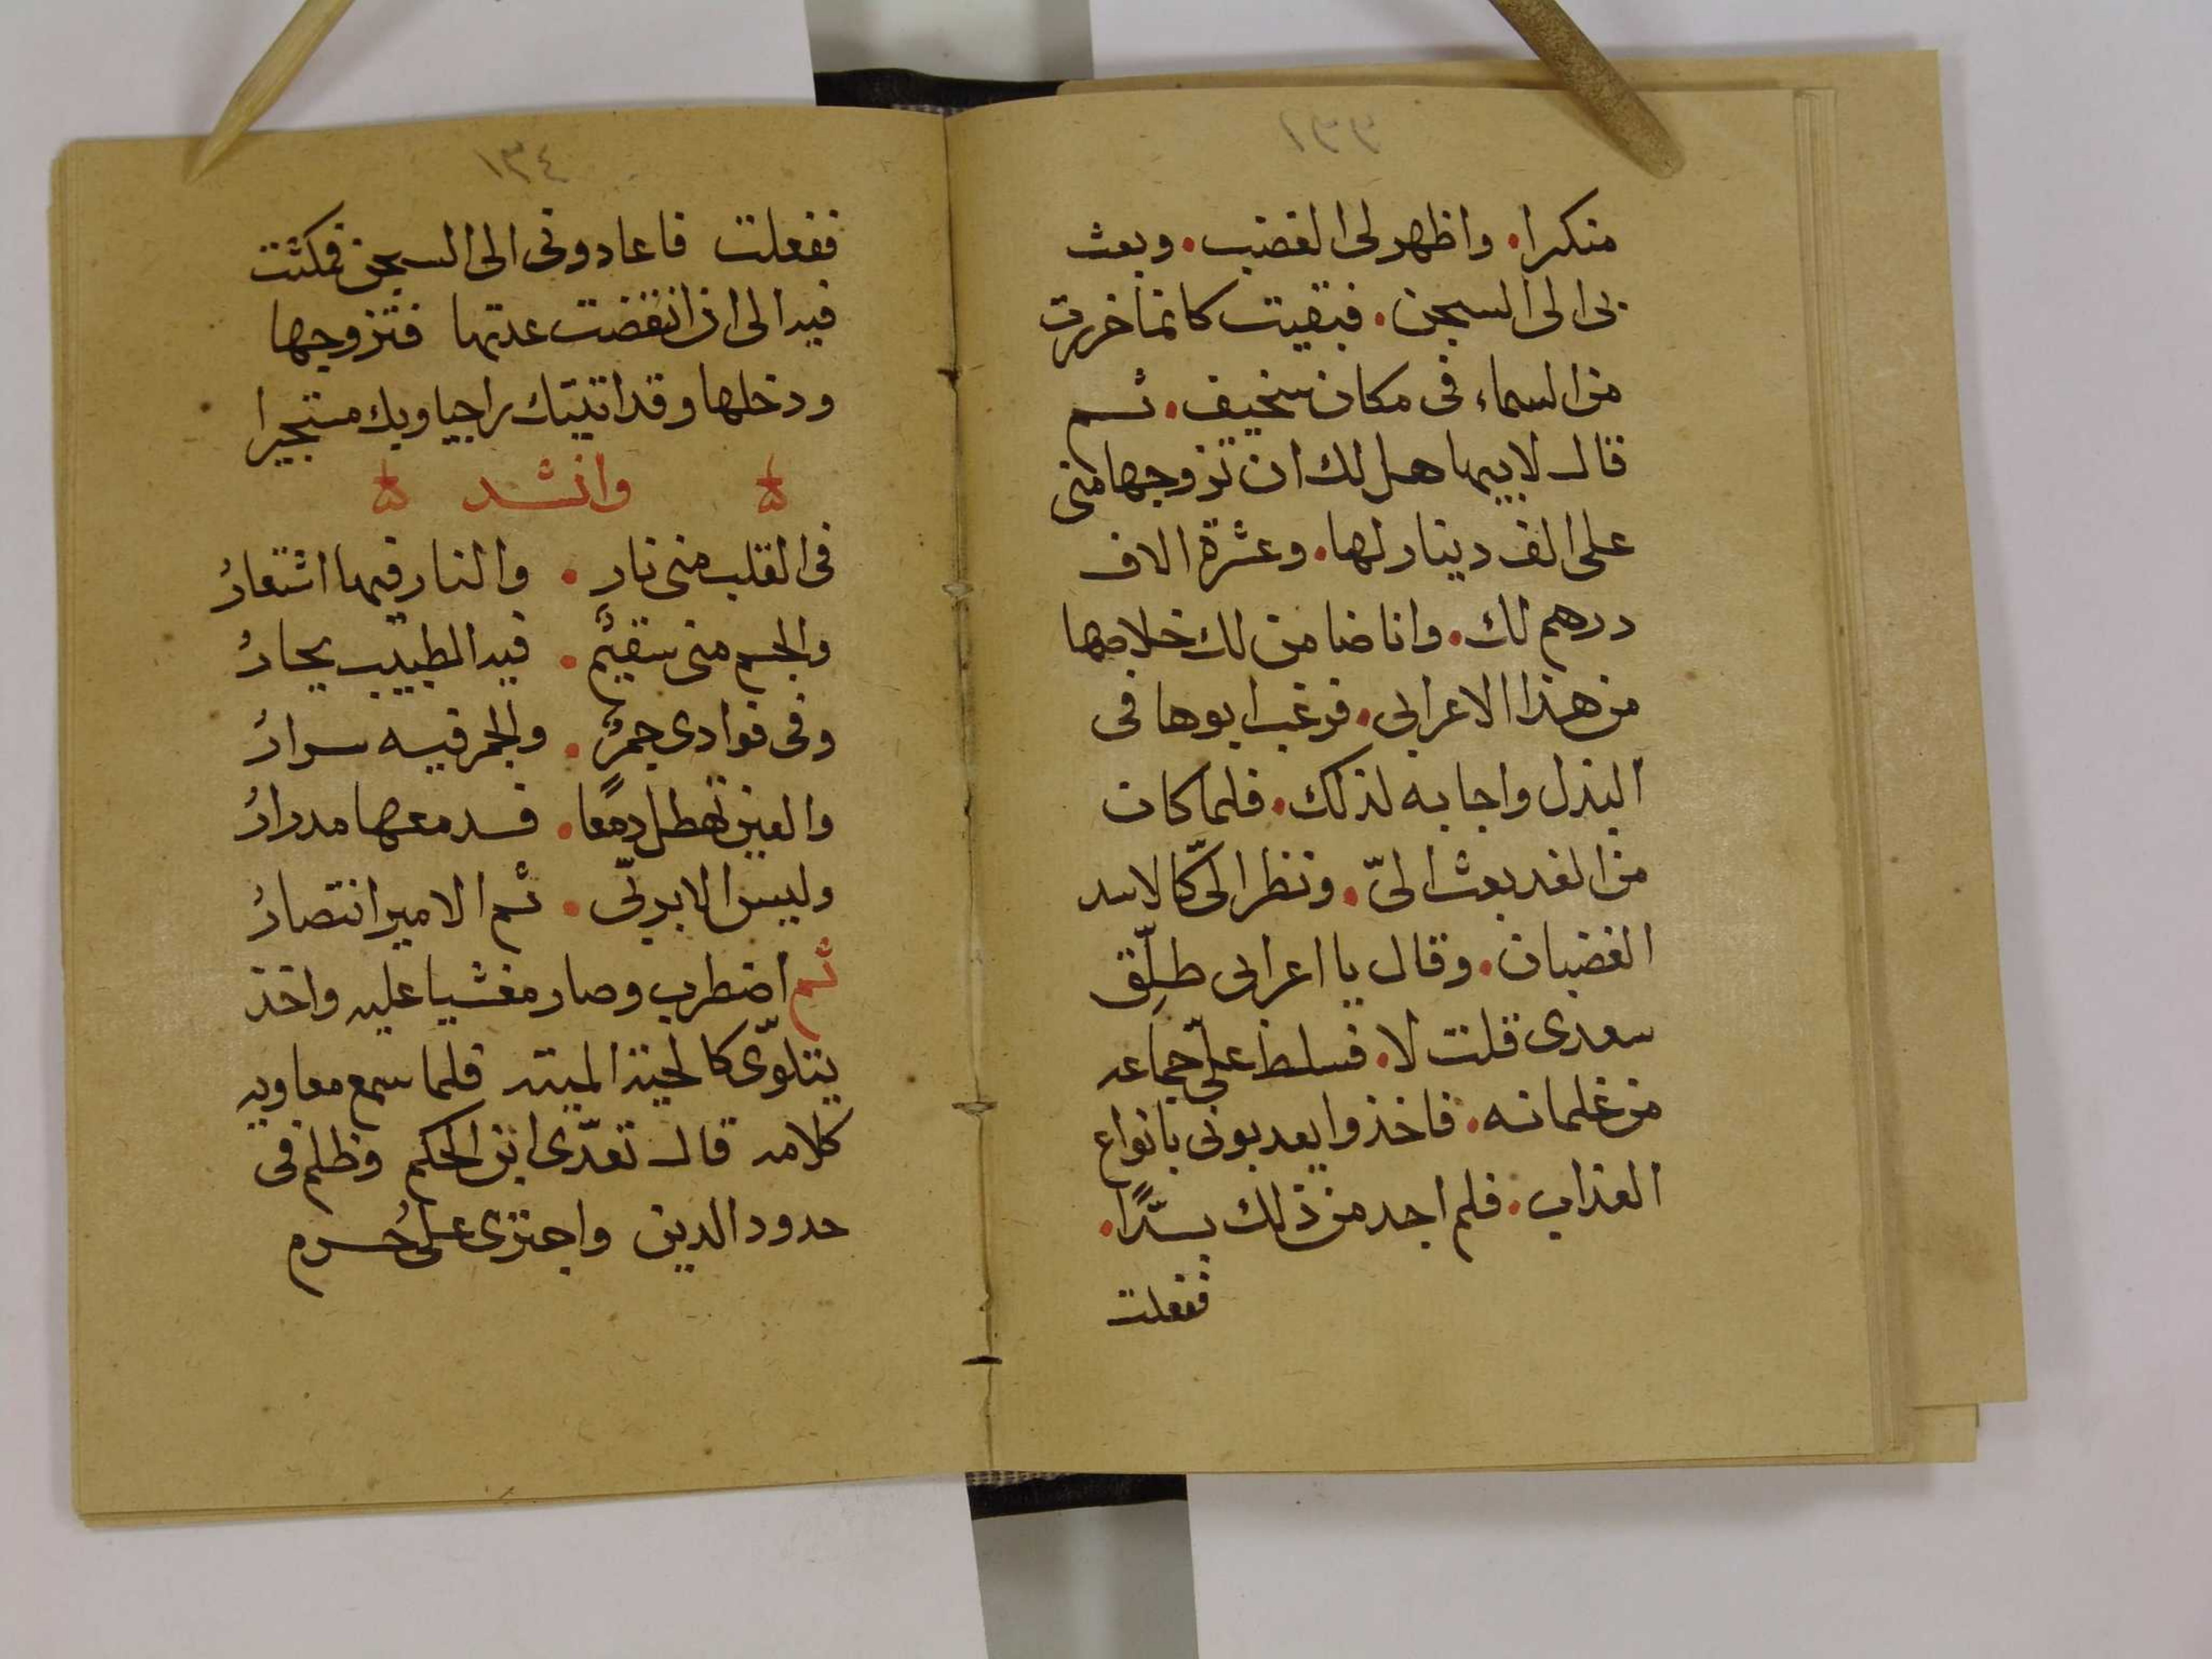 منكرا. واظهر لى الغضب. وبعث
بى الى السجن. فبقيت كانما خررت
من السماء فى مكان سخيف. ثم
قال لابيها هل لك ان تزوجها منى
على الف دينار لها. وعشرة الاف
درهم لك. وانا ضامن لك خلاصها
من هذا الاعرابى. فرغب ابوها فى
البذل واجابه لذلك. فلما كان
من الغد بعث الىّ. ونظر الىّ كالاسد
الغضبان. وقال يا اعرابى طلّق
سعدى قلت لا. فسلط علىّ جماعه
من غلمانه. فاخذوا يعدبونى بانواع
العذاب. فلم اجد من ذلك بدًّا.
ففعلت
١٣٤
ففعلت فاعادونى الى السجن فمكثت
فيه الى ان انقضت عدتها فتزوجها
ودخلها وقد اتيتك راجيا وبك مستجيرا
وانشد
فى القلب منى نار . والنار فيها اشتعارُ
والجسم منى سقيم . فيه الطبيب يحارُ
وفى فوادى جمرٌ . والجمر فيه سرارُ
والعين تهطل دمعًا . فدمعها مدرارُ
وليس الا بربّى . ثم الامير انتصارُ
ثم اضطرب وصار مغشيا عليه واخذ
يتلوّى كالحية الميته فلما سمع معاويه
كلامه قال تعدّى ابن الحكم وظلم فى
حدود الدين واجترى على حُرم